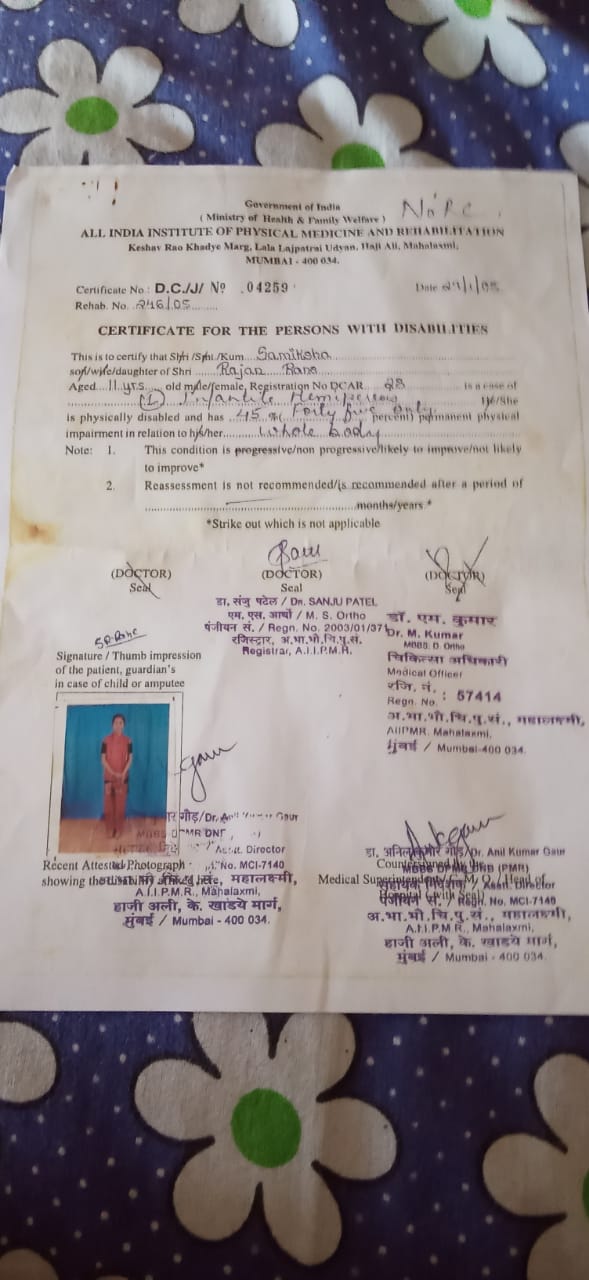 Government of India
NORC
( Ministry of Health & Family Welfare )
ALL INDIA INSTITUTE OF PHYSICAL MEDICINE AND REHABILITATION
Keshav Rao Khadye Marg, Lala Lajpatrai Udyan, Haji Ali, Mahalaxmi,
MUMBAI - 400 034.
Certificate No.: D.C./J/ Nº .04259 Date
Rehab. No. 246/05
CERTIFICATE FOR THE PERSONS WITH DISABILITIES
This is to certify that Shri /Smt./Kum. Samiksha
son/wife/daughter of Shri Rajan Rane
Aged 11 yrs. old male/female, Registration No DCAR 28 is a case of
(1) Infantile Hemiparesis He/She
is physically disabled and has 45 % ( Forty five only percent) permanent physical
impairment in relation to his/her whole body
Note: 1. This condition is progressive/non progressive/likely to improve/not likely
to improve*
2. Reassessment is not recommended/is recommended after a period of
months/years.*
*Strike out which is not applicable
(DOCTOR) (DOCTOR) (DOCTOR)
Seal Seal Seal
डा. संजु पटेल / Dr. SANJU PATEL
एम. एस. आर्थो / M. S. Ortho
पंजीयन सं. / Regn. No. 2003/01/371
रजिस्ट्रार, अ.भा.भौ.चि.पु.सं.
Registrar, A.I.I.P.M.R.
डॉ. एम. कुमार
Dr. M. Kumar
MBBS. D. Ortho
चिकित्सा अधिकारी
Medical Officer
रजि. नं. : 57414
Regn. No.
अ.भा.भौ.चि.पु.सं., महालक्ष्मी,
AIIPMR. Mahalaxmi,
मुंबई / Mumbai-400 034.
Signature / Thumb impression
of the patient, guardian's
in case of child or amputee
गौड़/Dr. Anil Kumar Gaur
Asstt. Director
No. MCI-7140
Recent Attested Photograph
showing the
महालक्ष्मी,
A.I.I.P.M.R., Mahalaxmi,
हाजी अली, के. खाडये मार्ग,
मुंबई / Mumbai - 400 034.
डा. अनिल कुमार गौड़/Dr. Anil Kumar Gaur
Countersigned by the
MBBS DPMR DNB (PMR)
Medical Superintendent/C.M.O./Head of
Asstt. Director
Hospital (with Seal)
पंजीयन सं. / Regn. No. MCI-7140
अ.भा.भौ.चि.पु.सं., महालक्ष्मी,
A.I.I.P.M.R., Mahalaxmi,
हाजी अली, के. खाडये मार्ग,
मुंबई / Mumbai - 400 034.